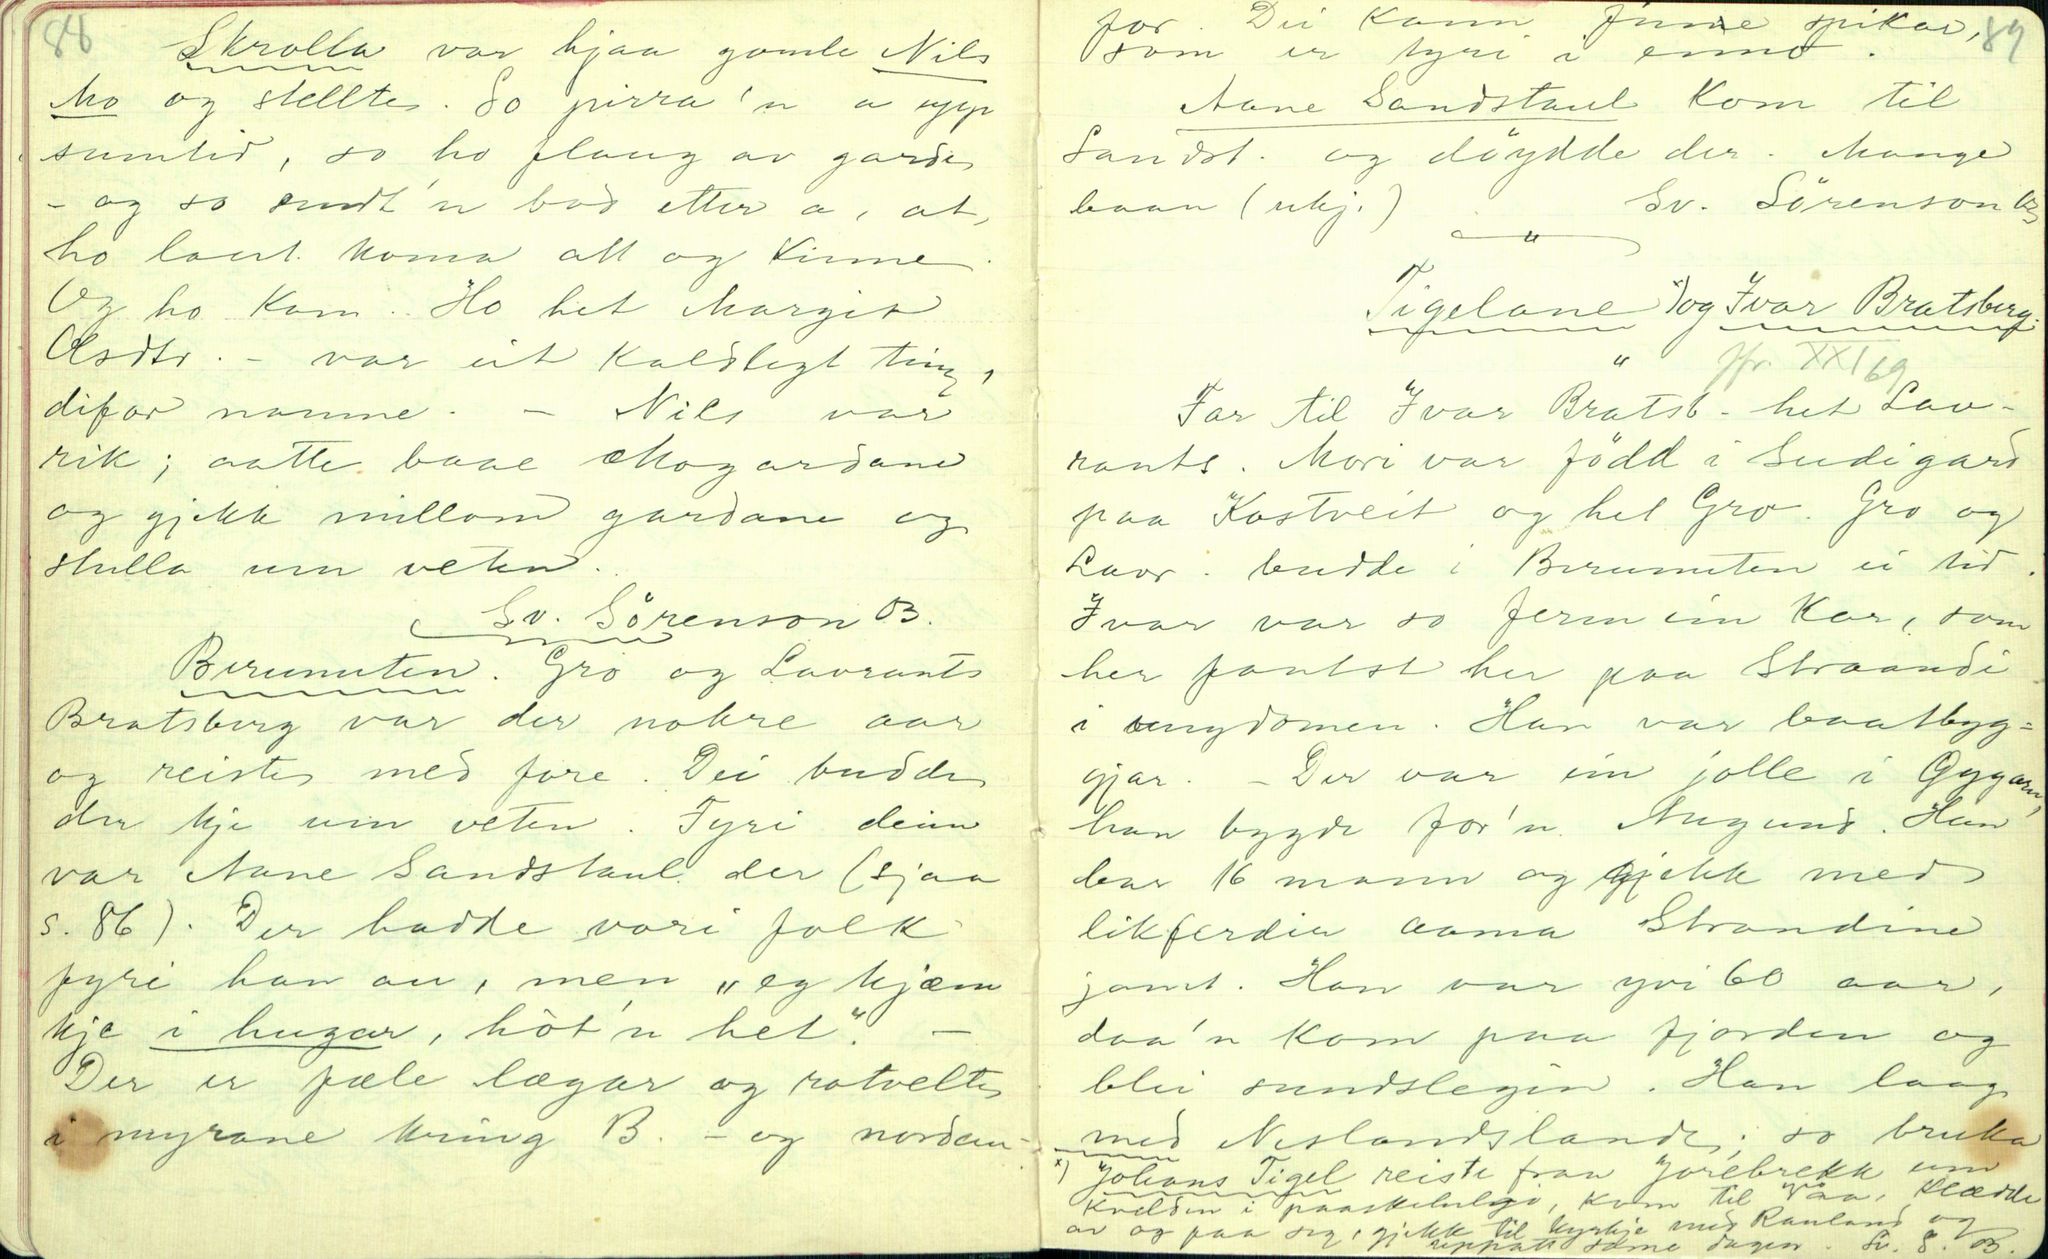 88
Skrolla var hjaa gamle Nils
Mo og stellte. So pirra'n a upp
sumtid, so ho flaug av garde
- og so sendt'n bod etter a, at
ho laut koma att og kinne.
Og ho kom. Ho het Margit
Olsdtr. - var eit kaldlegt ting,
difor namne. - Nils var
rik; aatte baae Mogardane
og gjekk millom gardane og
stulla um veten.
Sv. Sörenson B.
Birunuten. Gro og Lavrants
Bratsberg var der nokre aar
og reiste med fore. Dei budde
der kje um veten. Fyri deim
var Aane Sandstaul der (sjaa
s. 86). Der hadde vori folk
fyri han au, men "eg kjæm
kje i hugar, hòt'n het". -
Der er fæle lægar og rotvelte
i myrane kring B. - og nordan-
89
for. Dei kann finne spikar,
som er tyri i enno.
Aane Sandstaul kom til
Sandst. og döydde der. Mange
baan (ukj.) Sv. Sörenson B
"
Tigelane x) og Ivar Bratsberg.
" jfr. XXI 69
Far til Ivar Bratsb. het Lav-
rants. Mori var född i Sudigard
paa Kostveit og het Gro. Gro og
Lavr. budde i Birunuten ei tid.
Ivar var so ferm ein kar, som
her fantst her paa Straandi
i ungdomen. Han var baatbyg-
gjar. - Der var ein jolle i Gygarn,
han bygde for'n Augund. Han
bar 16 mann og gjekk med
likferdir aama Strandine
jamt. Han var yvi 60 aar,
daa'n kom paa fjorden og
blei sundslegin. Han laag
med Neslandslande; so bruka
x) Johans Tigel reiste fraa Jorebrekk um
kvelden i paaskehelgi, kom til Vaa, klædde
av og paa seg, gjekk til kyrkje med Rauland og
uppatt same dagen. Sv. S. B.